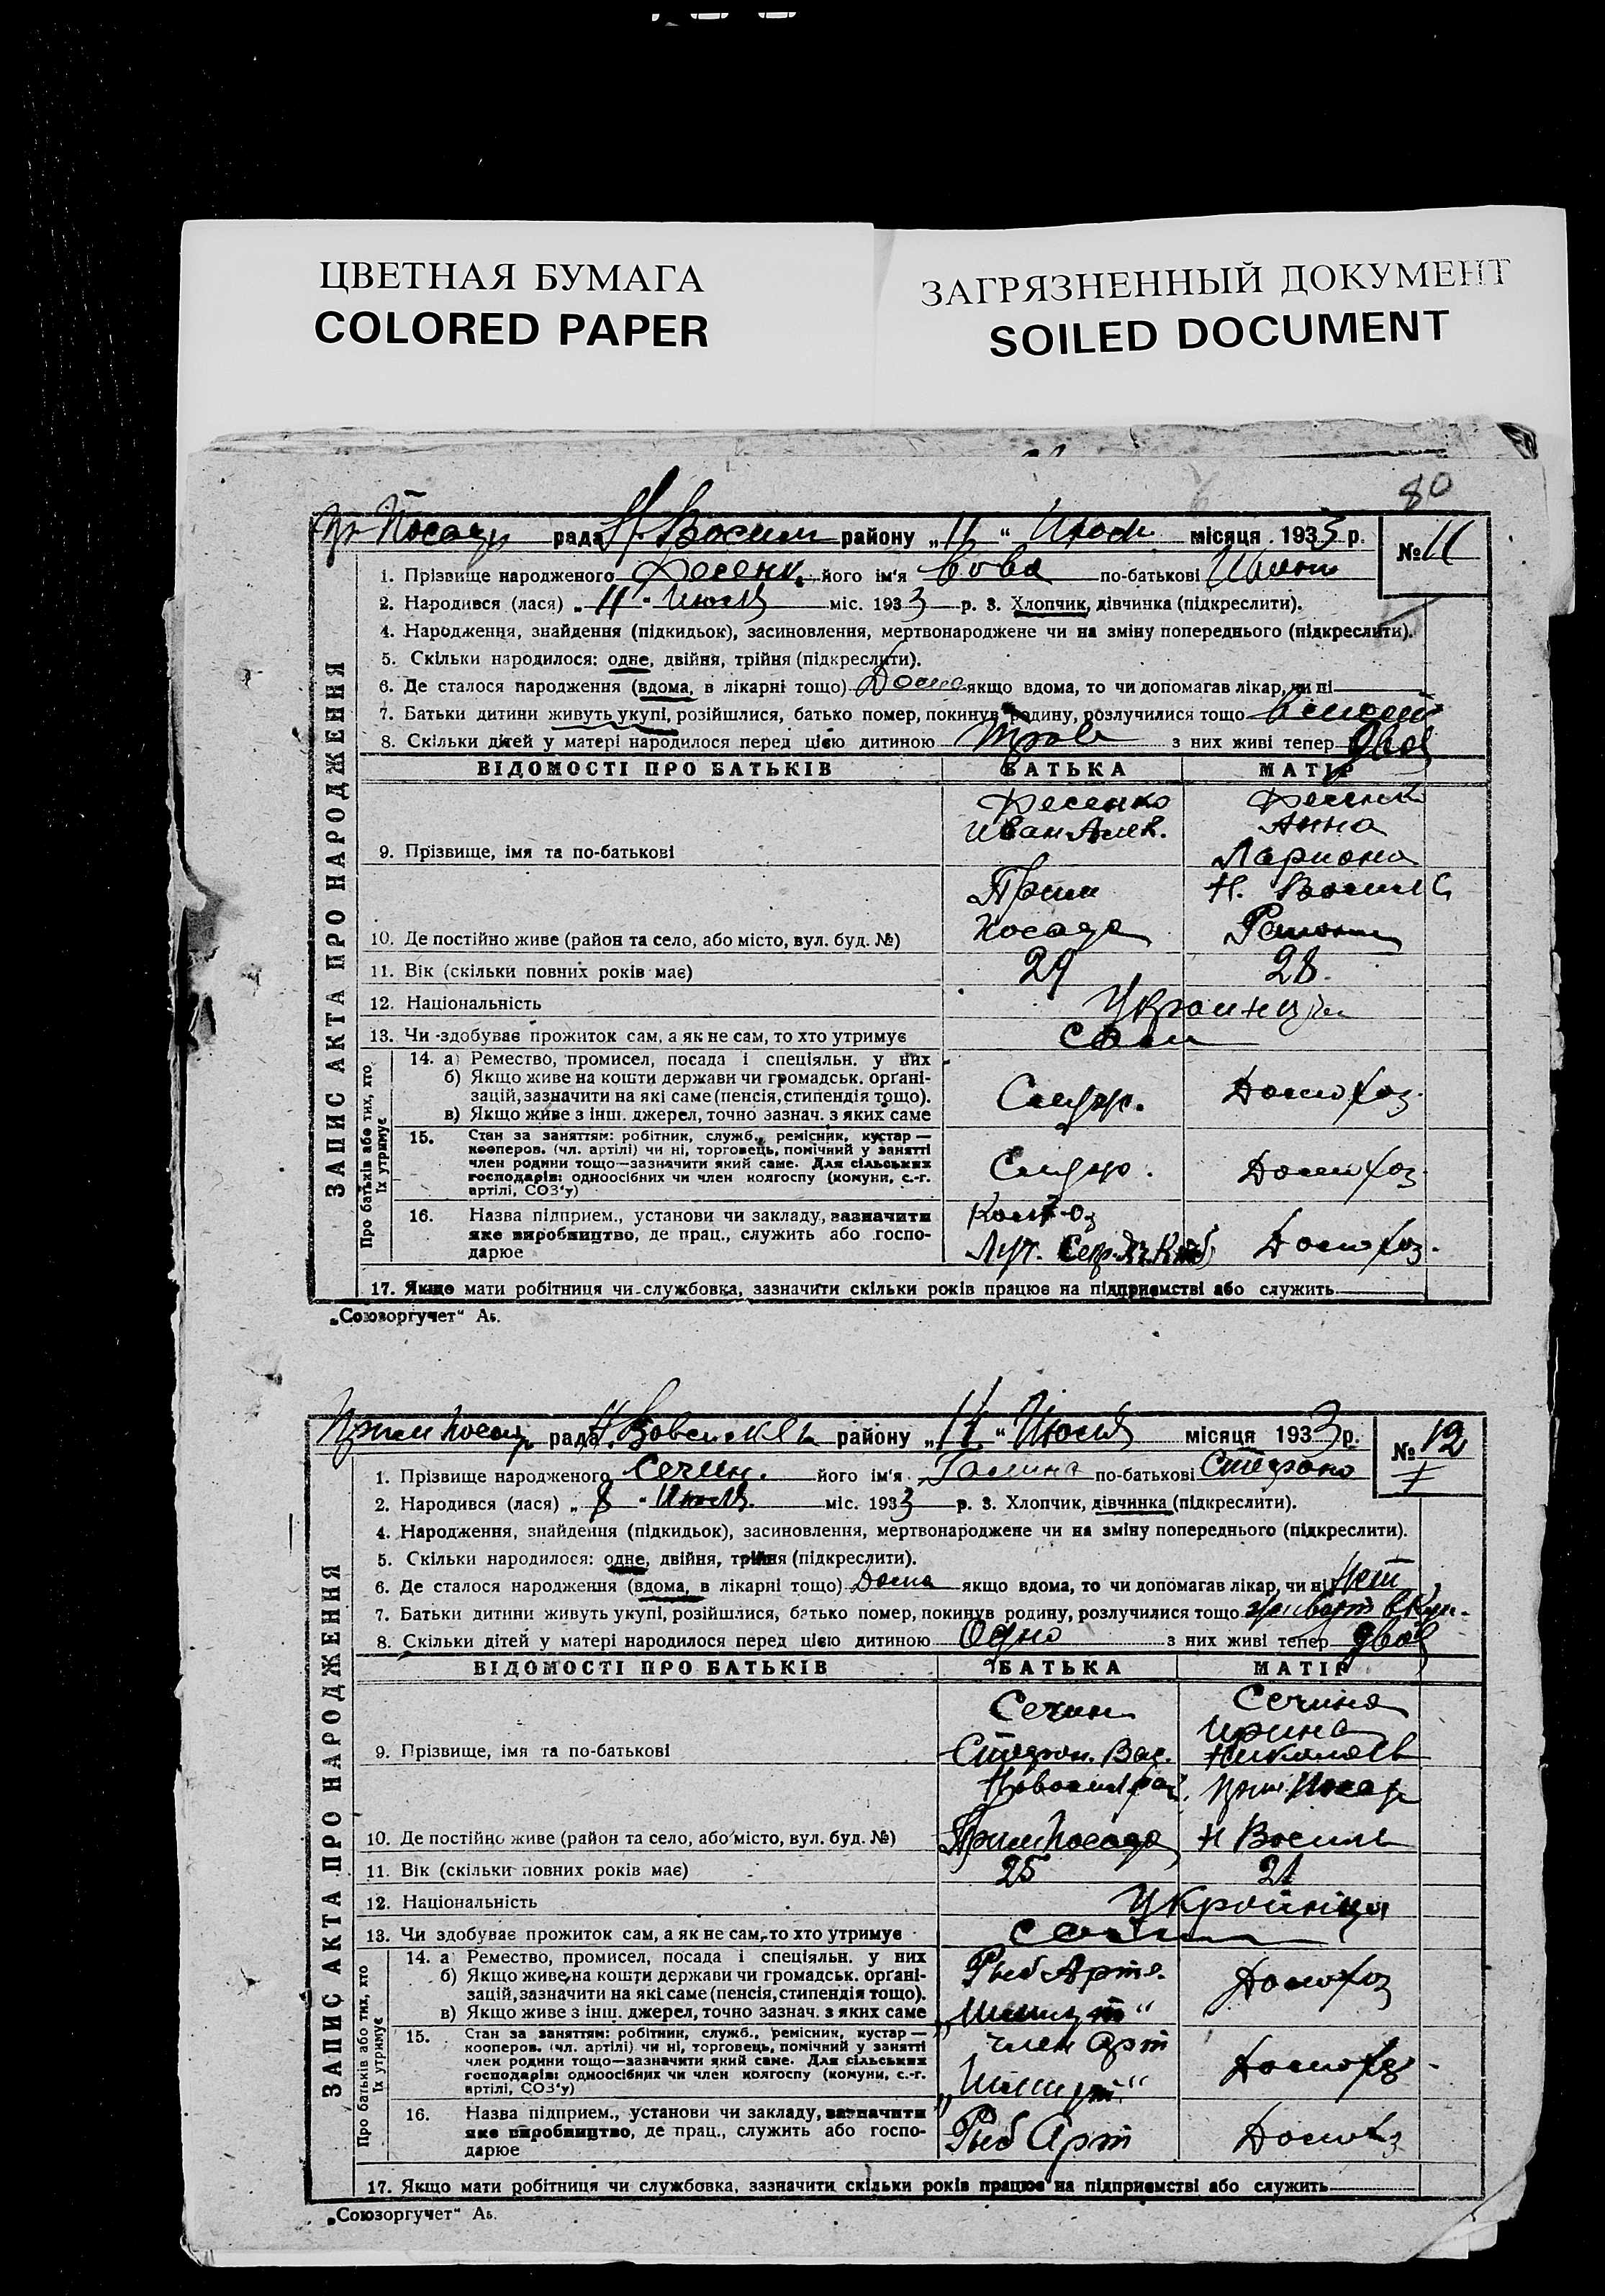 ЦВЕТНАЯ БУМАГА
COLORED PAPER
ЗАГРЯЗНЕННЫЙ ДОКУМЕНТ
SOILED DOCUMENT
80
рада Н. Восил району „11“ місяця 1933 р. № 11
ЗАПИС АКТА ПРО НАРОДЖЕННЯ
1. Прізвище народженого Фесенк. його ім'я Вова по-батькові
2. Народився (лася) „11“ Июля міс. 1933 р. 3. Хлопчик, дівчинка (підкреслити).
4. Народження, знайдення (підкидьок), засиновлення, мертвонароджене чи на зміну попереднього (підкреслити).
5. Скільки народилося: одне, двійня, трійня (підкреслити).
6. Де сталося народження (вдома, в лікарні тощо) Дома якщо вдома, то чи допомагав лікар, чи ні
7. Батьки дитини живуть укупі, розійшлися, батько помер, покинув родину, розлучилися тощо
8. Скільки дітей у матері народилося перед цією дитиною Трое з них живі тепер двое
ВІДОМОСТІ ПРО БАТЬКІВ БАТЬКА МАТІР
Фесенко Фесенко
Иван Алек. Анна
9. Прізвище, імя та по-батькові Лариона
Прим Н. Восил
10. Де постійно живе (район та село, або місто, вул. буд. №) Посада
11. Вік (скільки повних років має) 29 28.
12. Національність Украинци
13. Чи здобуває прожиток сам, а як не сам, то хто утримує сами
Про батьків або тих, хто їх утримує
14. а) Ремество, промисел, посада і спеціяльн. у них
б) Якщо живе на кошти держави чи громадськ. органі-
зацій, зазначити на які саме (пенсія, стипендія тощо). Служ. Домохоз.
в) Якщо живе з інш. джерел, точно зазнач. з яких саме
15. Стан за заняттям: робітник, служб., ремісник, кустар —
кооперов. (чл. артілі) чи ні, торговець, помічний у занятті
член родини тощо—зазначити який саме. Для сільських Служ. Домохоз.
господарів: одноосібних чи член колгоспу (комуни, с.-г.
артілі, СОЗ'у)
16. Назва підприєм., установи чи закладу, зазначити
яке виробництво, де прац., служить або госпо- Домохоз.
дарює
17. Якщо мати робітниця чи службовка, зазначити скільки років працює на підприємстві або служить
„Союзоргучет“ Аь.
Прим Посад рада району „11“ Июля місяця 1933 р. № 12
ЗАПИС АКТА ПРО НАРОДЖЕННЯ
1. Прізвище народженого Сечин. його ім'я Галина по-батькові Стефано
2. Народився (лася) „8“ Июля міс. 1933 р. 3. Хлопчик, дівчинка (підкреслити).
4. Народження, знайдення (підкидьок), засиновлення, мертвонароджене чи на зміну попереднього (підкреслити).
5. Скільки народилося: одне, двійня, трійня (підкреслити).
6. Де сталося народження (вдома, в лікарні тощо) Дома якщо вдома, то чи допомагав лікар, чи ні Нет
7. Батьки дитини живуть укупі, розійшлися, батько помер, покинув родину, розлучилися тощо живут вкуп.
8. Скільки дітей у матері народилося перед цією дитиною Одно з них живі тепер двое
ВІДОМОСТІ ПРО БАТЬКІВ БАТЬКА МАТІР
Сечин Сечина
Ирина
9. Прізвище, імя та по-батькові Стефан. Вас. Николаев
Прим Посад
10. Де постійно живе (район та село, або місто, вул. буд. №) Прим Посада Н Восил
11. Вік (скільки повних років має) 25 21
12. Національність Українци
13. Чи здобуває прожиток сам, а як не сам, то хто утримує сами
Про батьків або тих, хто їх утримує
14. а) Ремество, промисел, посада і спеціяльн. у них Рыб Арте.
б) Якщо живе на кошти держави чи громадськ. органі-
зацій, зазначити на які саме (пенсія, стипендія тощо). Домохоз
в) Якщо живе з інш. джерел, точно зазнач. з яких саме
15. Стан за заняттям: робітник, служб., ремісник, кустар — член арт
кооперов. (чл. артілі) чи ні, торговець, помічний у занятті
член родини тощо—зазначити який саме. Для сільських Домохоз.
господарів: одноосібних чи член колгоспу (комуни, с.-г.
артілі, СОЗ'у)
16. Назва підприєм., установи чи закладу, зазначити
яке виробництво, де прац., служить або госпо- Рыб Арт Домохоз
дарює
17. Якщо мати робітниця чи службовка, зазначити скільки років працює на підприємстві або служить
„Союзоргучет“ Аь.